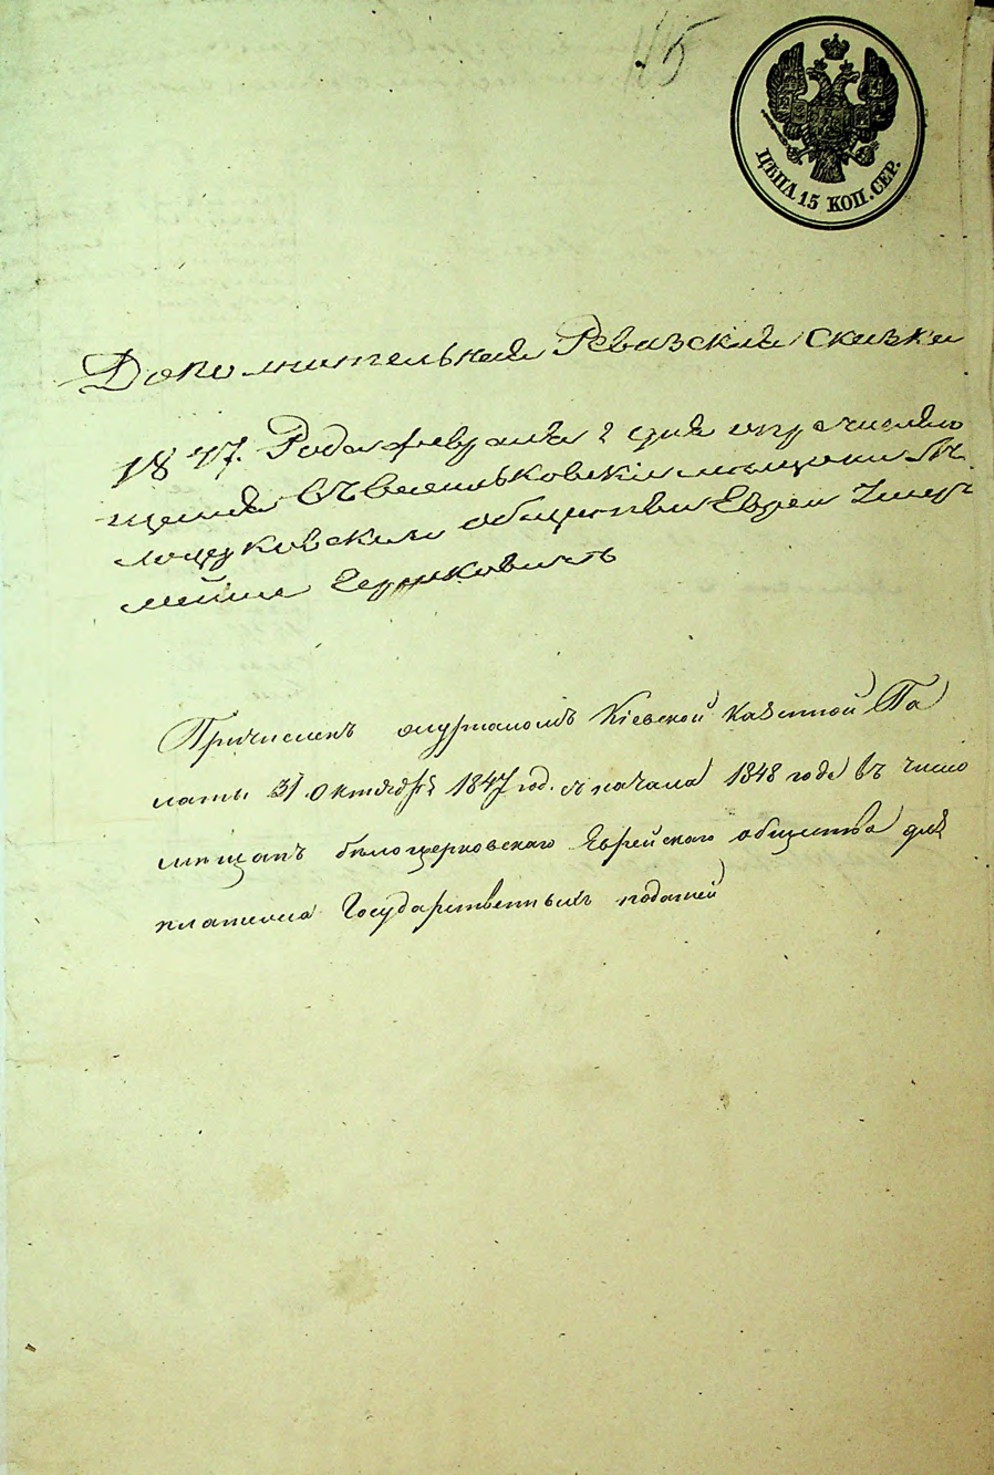 115
ЦѢНА 15 КОП. СЕР.
Дополнительная Ревизская сказка
1847. Года февраля 2 дня
въ васильковскіе мещане Бѣ
лоцерковскаго общества Еврей
Причисленъ журналомъ Кіевской казенной Па
латы 31 октября 1847 год. съ начала 1848 года въ число
мѣщанъ бѣлоцерковскаго Еврейскаго общества для
платежа Государственныхъ податей